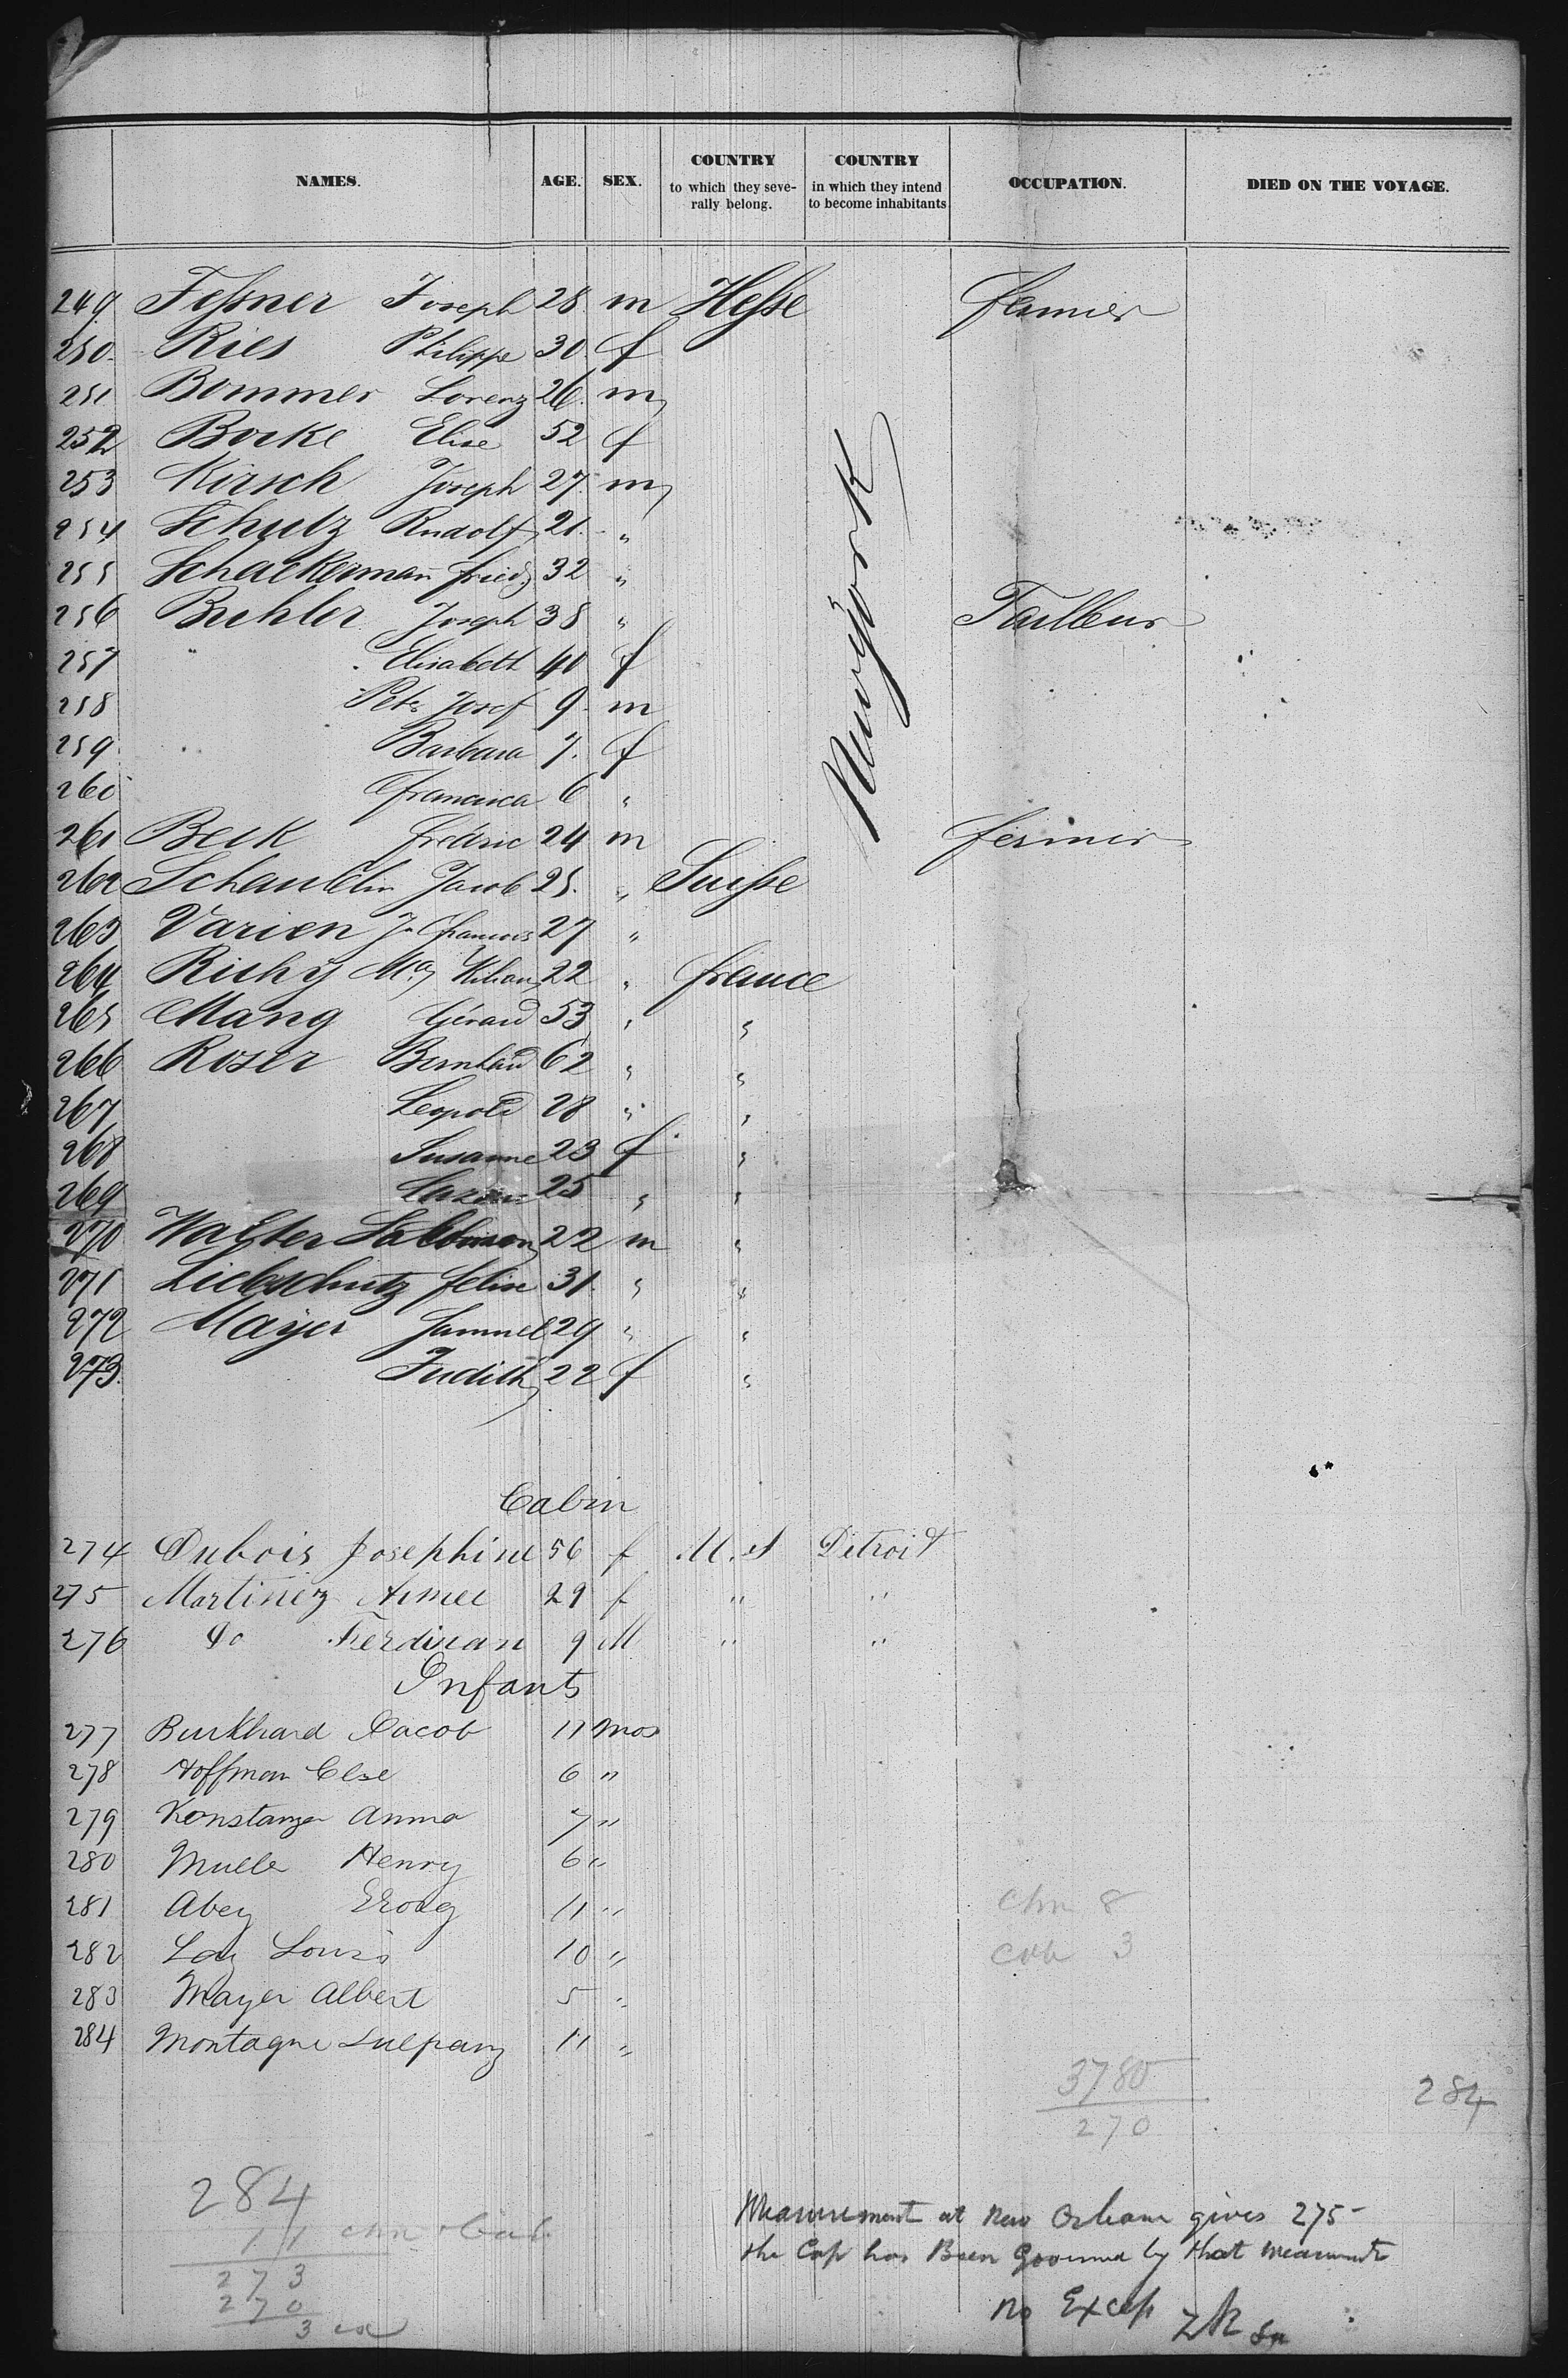 NAMES. AGE. SEX. COUNTRY to which they severally belong. COUNTRY in which they intend to become inhabitants OCCUPATION. DIED ON THE VOYAGE.
249. Feßner Joseph 28 m Hesse fermier
250. Ries Philippe 30 f
251 Bommer Lorenz 26. m
252 Bocke Elise 52 f
253 Kirsch Joseph 27. m
254 Schutz Rudolf 21. "
255 Schackerman fried 32 "
256 Buhler Joseph 38 " Tailleur
257 " Elisabeth 40 f
258 Peter Josef 9 m
259 Barbara 7. f
260 francisca 6 "
Newyork
261 Beck fréderic 24 m fermier
262 Schaublin Jacob 25. " Suisse
263 Varien Jn francois 27 "
264 Richy Kilian 22 " france
265 Mang Gérard 53 " "
266 Roser Bernhard 62 " "
267 Leopold 28 " "
268 Susanne 23 f "
269 25 " "
270 Walter Salomon 22 m "
271 Liebschutz felix 31. " "
272 Mayer Samuel 29 " "
273. Judith 22 f "
Cabin
274 Dubois Josephine 56 f U. S Detroit
275 Martinez Aimee 29 f " "
276 do Ferdinan 9 M " "
Infants
277 Burkhard Jacob 11 mos
278 Hoffman Else 6 "
279 Konstanzer Anna 7 "
280 Muller Henry 6 "
281 Abey 11 "
282 Louis 10 "
283 Mayer Albert 5 "
284 Montagne 11 "
chn 8
cab 3
3780
270
284
284
11 chn + Cab.
273
270
3 ex
Measurement at New Orleans gives 275
the Cap has Been Governed by that Measurment
No Excess